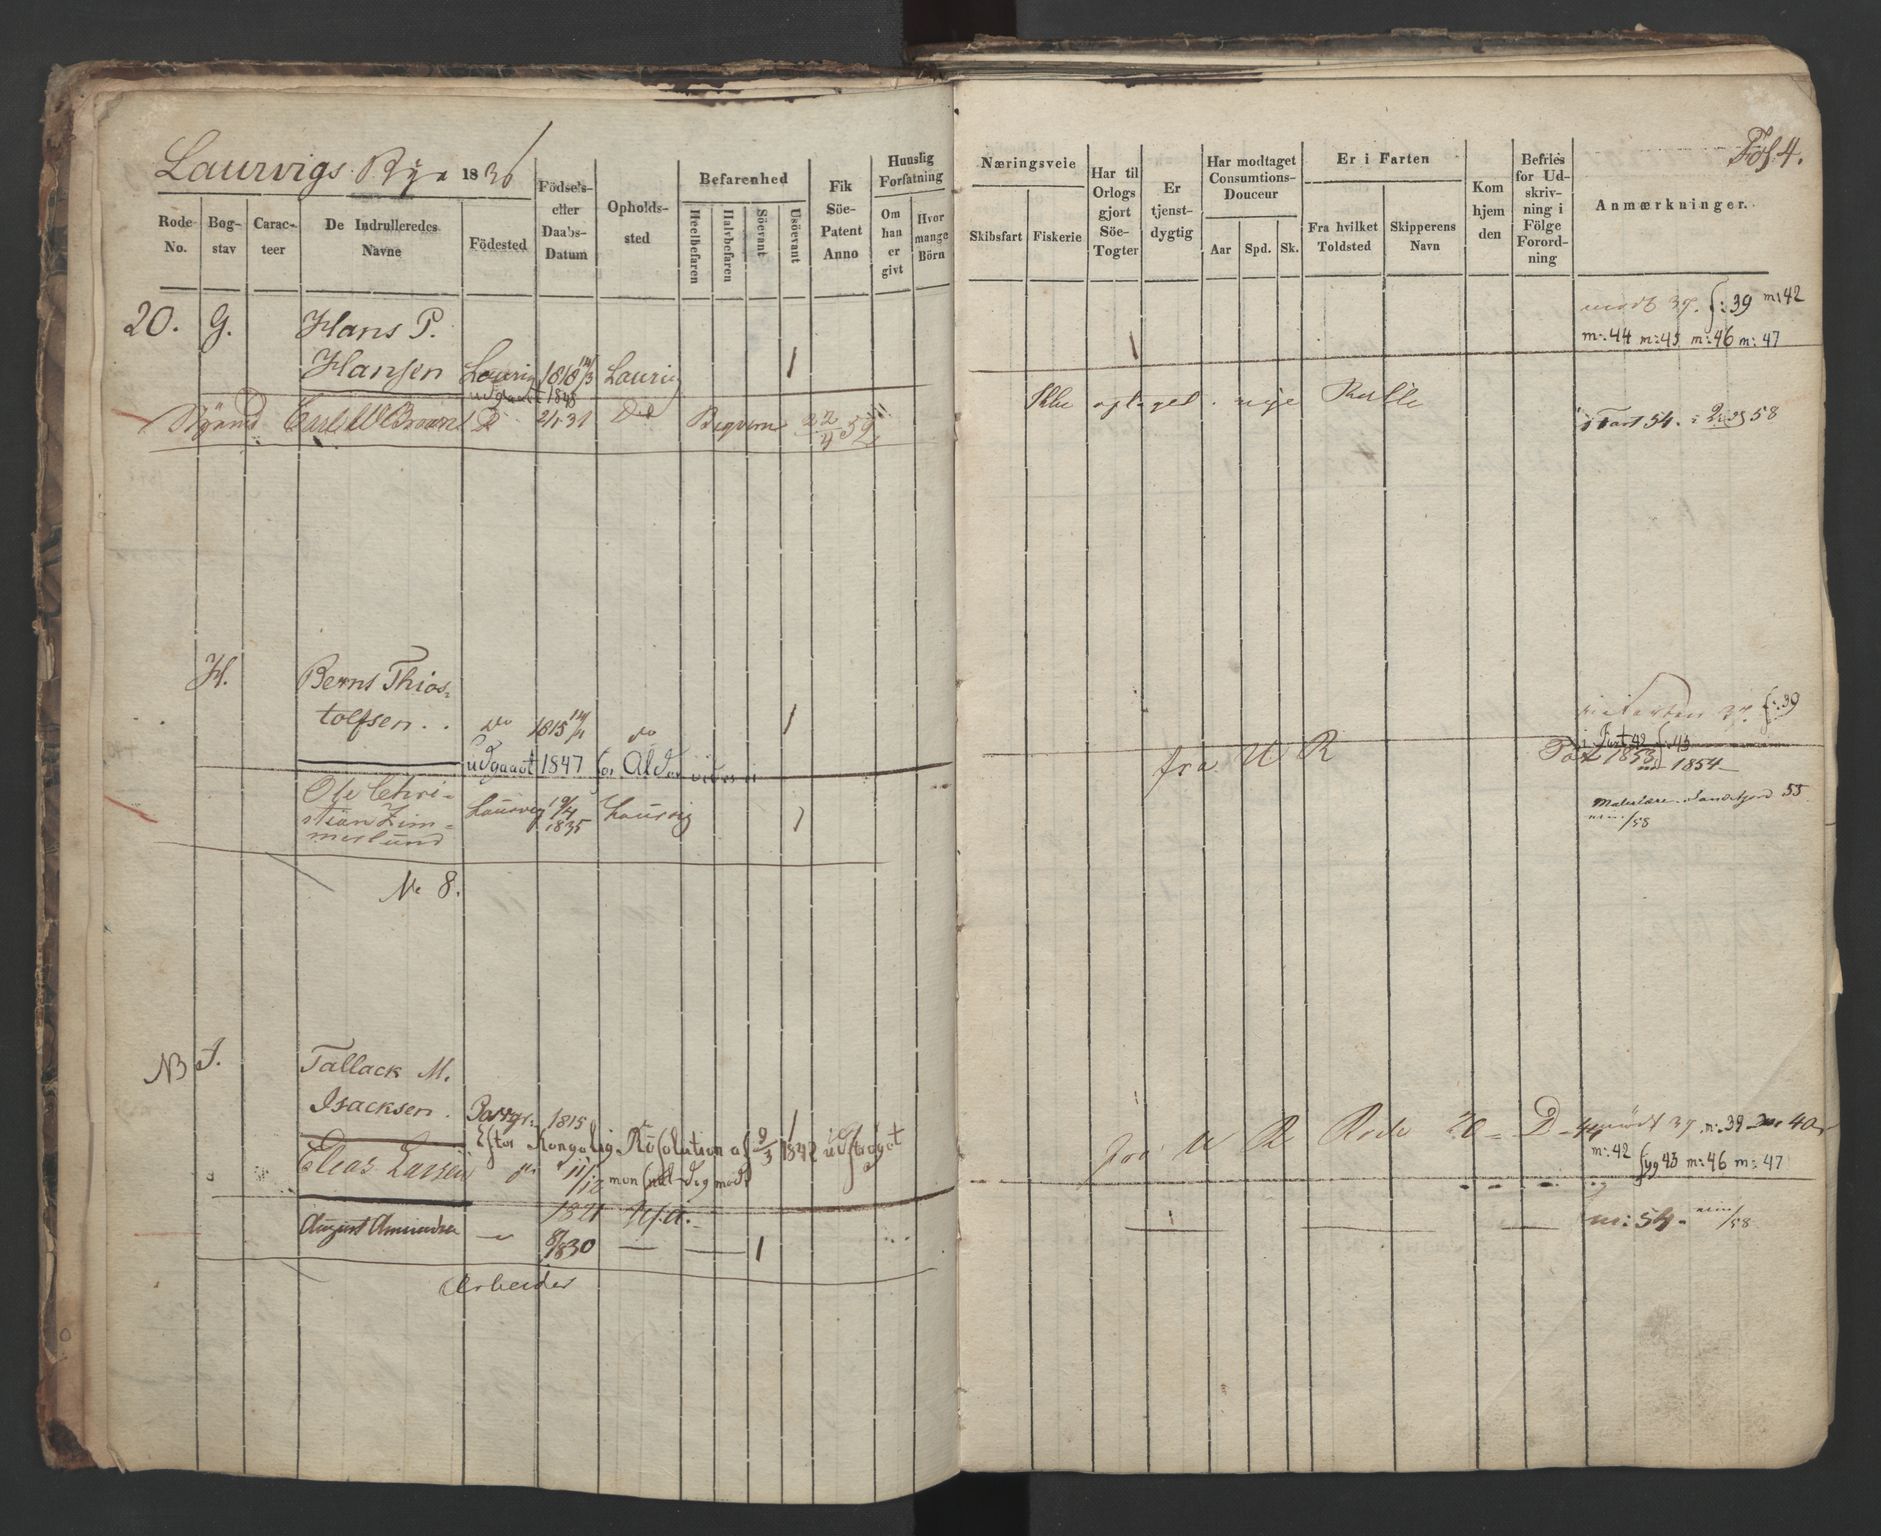 Laurvigs Bye 1836
Rode No.
Bogstav
Caracteer
De Indrulleredes Navne
Födested
Födsels- eller Daabs-Datum
Opholdssted
Befarenhed
Heelbefaren
Halvbefaren
Söevant
Usöevant
Fik Söe-Patent Anno
Huuslig Forfatning
Om han er givt
Hvor mange Börn
Næringsveie
Skibsfart
Fiskerie
Har til Orlogs gjort Söe-Togter
Er tjenstdygtig
Har modtaget Consumtions-Douceur
Aar
Spd.
Sk.
Er i Farten
Fra hvilket Toldsted
Skipperens Navn
Kom hjem den
Befries for Udskrivning i Fölge Forordning
Anmærkninger.
Fol. 4.
20. G. Hans P.
Hansen Laurvig 1818 14/3 Laurvig 1
1
mödt 37. f: 39 m: 42
m: 44 m: 45 m: 46 m: 47
udgaaet 1848
Carl W
Ikke optaget
Rulle
i Fart 54. 58
H. Bernt Thios-
tolfsen . . do 1815 14/1 do 1
37. f: 39
i Fart 42 f: 43
udgaaet 1847 for Alder
fra U R
1853
1854
Ole Chri-
stian Zim-
merlund Laurvig 19/4 1835 Laurvig 1
Sandefjord 55
/58
No 8.
NB I. Tallack M.
Isacksen. Porsgr: 1815 1
mödt 37. m: 39 40
m: 42 syg 43 m: 46 m: 47
Efter Kongelig Resolution af 9/3 1842 udstrøget
Elias Larsen 11/12
1821
fra U R Rode 20 - D - 44
August Amundsen 8/8 30 — — 1
m: 54 - /58
Arbeider